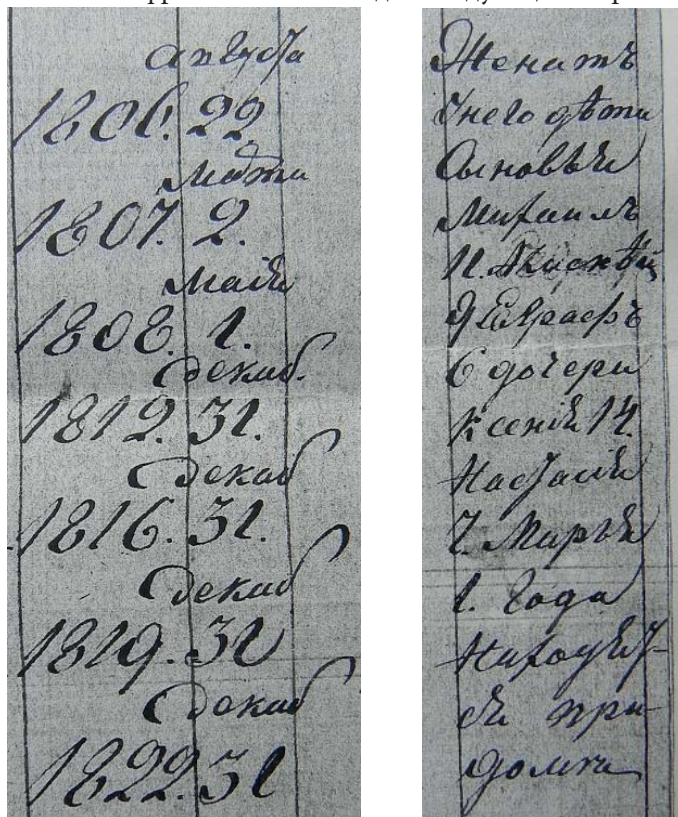 августа
1806. 22.
марта
1807. 2.
маія
1808. 1.
декаб.
1812. 31.
декаб
1816. 31.
декаб
1819. 31
декаб
1822. 31
Женатъ
Унего дѣти
Сыновья
Михаилъ
11.
9 Евграфъ
6 дочери
Ксенія 14.
Настасія
7. Марья
1. Года
Находят-
ся при
домѣ